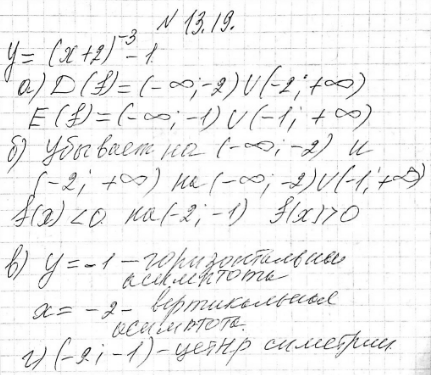 № 13.19.
y = (x+2)⁻³ - 1.
а) D(f) = (-∞; -2) U (-2; +∞)
E(f) = (-∞; -1) U (-1; +∞)
б) убывает на (-∞; -2) и
(-2; +∞) на (-∞; -2) U (-1; +∞)
f(x) < 0. на (-2; -1) f(x) > 0
в) y = -1 - горизонтальная
асимптота
x = -2 - вертикальная
асимптота.
г) (-2; -1) - цетнр симетрии